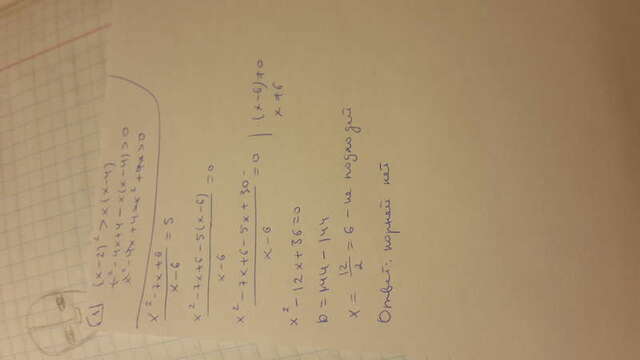 1 (x-2)² > x(x-4)
x² - 4x + 4 - x(x-4) > 0
x² - 4x + 4 - x² + 4x > 0
x² - 7x + 6 / x - 6 = 5
x² - 7x + 6 - 5(x-6) / x - 6 = 0
x² - 7x + 6 - 5x + 30 / x - 6 = 0 | (x-6) ≠ 0
x ≠ 6
x² - 12x + 36 = 0
D = 144 - 144
x = 12/2 = 6 - не подходит
Ответ: корней нет